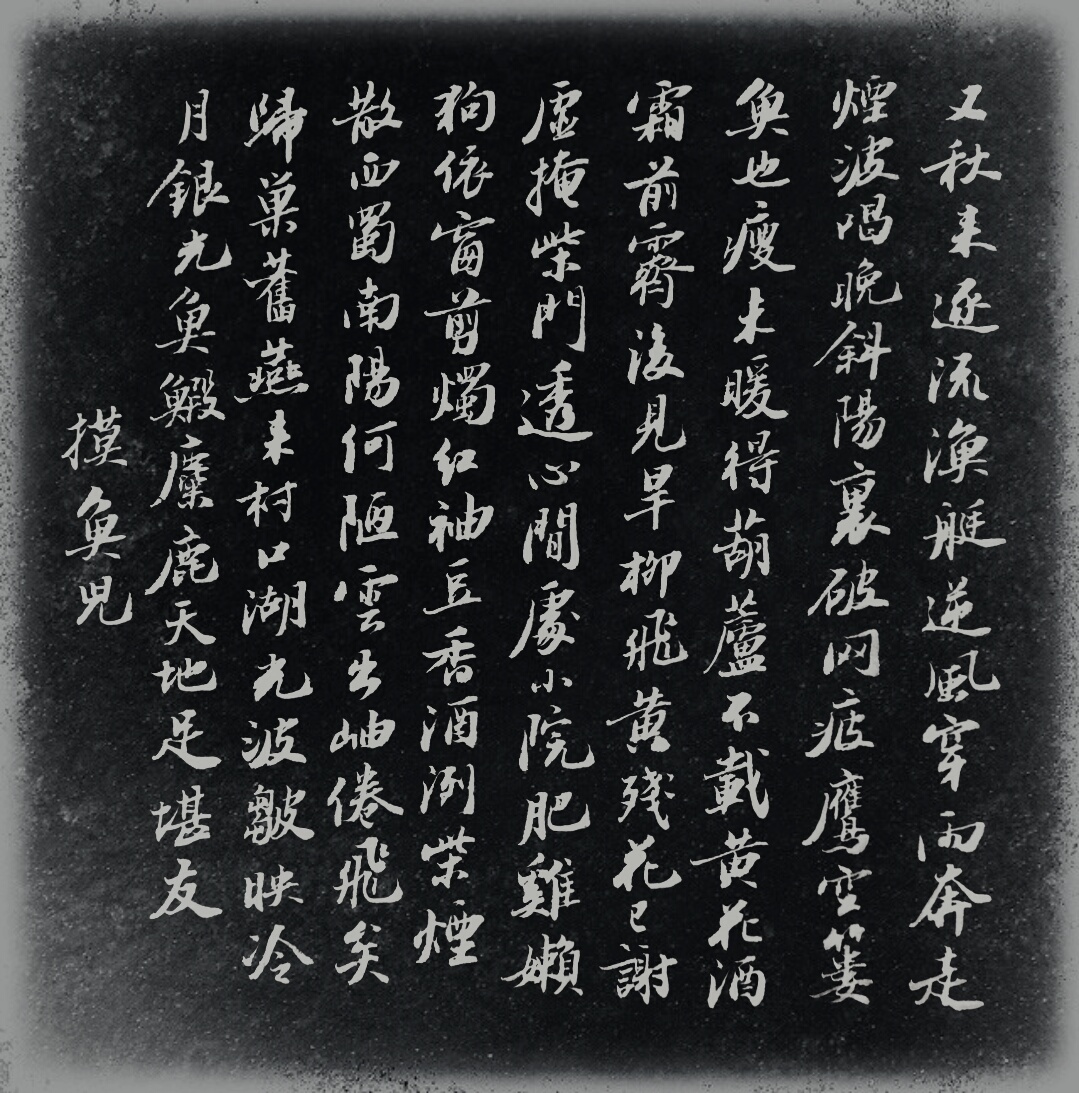 又秋来逐流漁艇逆風穿雨奔走
煙波唱晚斜陽裏破网疲鷹空簍
魚也瘦未暖得葫蘆不載黄花酒
霜前霽後見旱柳飛黄殘花已謝
虛掩柴門透心間處小院肥雞懶
狗依窗剪燭紅袖豆香酒洌柴煙
散西蜀南陽何陋雲出岫倦飛矣
歸巢舊燕来村口湖光波皺映冷
月銀光魚鰕麋鹿天地足堪友
摸魚兒